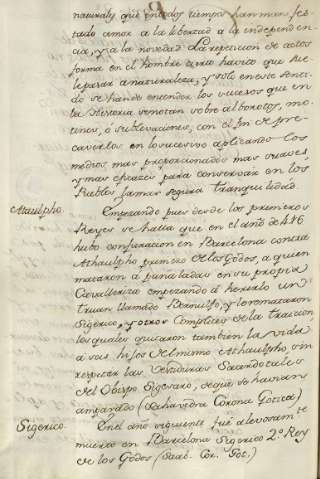 naturales que en todos tiempos han manifes
tado amor a la libertad a la independen
cia, y a la novedad. La repeticion de actos
forma en el hombre cierto havito que sue
le pasar a naturaleza, y solo en este senti
do se han de entender los sucesos que en
la Historia se notan sobre alborotos, mo
tines, o sublevaciones, con el fin de pre
caverlos en lo sucesivo aplicando los
medios mas proporcionados mas suaves,
y mas eficazes para conservar en los
Pueblos la mas segura tranquilidad.
Ataulpho. Empezando pues desde los primeros
Reyes se halla que en el año de 416
hubo conjuracion en Barcelona contra
Athaulpho primero de los Godos, a quien
mataron a puñaladas en su propia
Cavalleriza empezando á herirlo un
truan llamado Bernulfo, y lo remataron
Sigerico, y otros Complices de la traicion
los quales quitaron tambien la vida
á seis hijos del mismo Athaulpho, sin
respetar las Vestiduras Sacerdotales
del Obispo Sigesaro, de que se havian
amparado (Sahavedra Corona Gotica)
Sigerico. En el año siguiente fue alevosamte
muerto en Barcelona Sigerico 2º Rey
de los Godos (Saab. Cor. Got.)